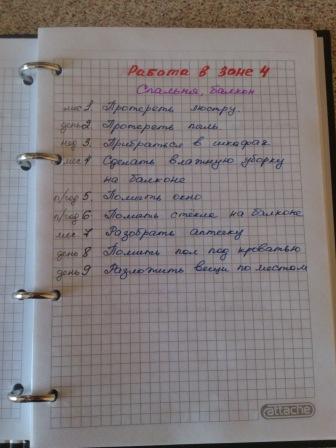 Работа в зоне 4
Спальня, балкон
мес 1. Протереть люстру.
день 2. Протереть пыль
нед 3. Прибраться в шкафах
мес 4 Сделать влажную уборку
на балконе
п/год 5. Помыть окно
п/год 6 Помыть стекла на балконе
мес 7 Разобрать аптечку
день 8 Помыть пол под кроватью
день 9 Разложить вещи по местам
attache